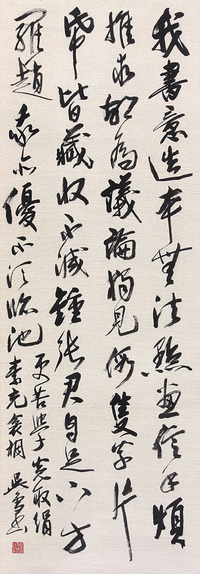 我書意造本無法點畫信手煩
推求胡為議論獨見假隻字片
帋皆藏收不減鍾張君自足下方
羅趙我亦優不須臨池
更苦學完取絹
素充衾裯